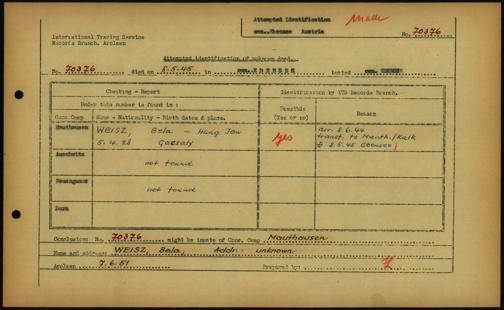 Attempted Identification
cem. Ebensee Austria
Male
No. 70376
International Tracing Service
Records Branch, Arolsen
Attempted identification of unknown dead.
No. 70376 died on 8.5.45 in cem. EBENSEE buried cem. EBENSEE
Checking - Report
Identification by ITS Records Branch.
Under this number is found in :
Possible
(Yes or no)
Reason
Conc Camp
Name - Nationality - Birth dates & place.
Mauthausen
WEISZ, Bela - Hung Jew
5.4.28
yes
arr. 8.6.44
transf. to Mauth./
8.5.45 Ebensee)
Auschwitz
not found
not found
Dora
Conclusion: No. 70376 might be inmate of Conc. Camp Mauthausen
Name and address: WEISZ, Bela Addr: unknown
Arolsen 7.6.51 Prepared by: